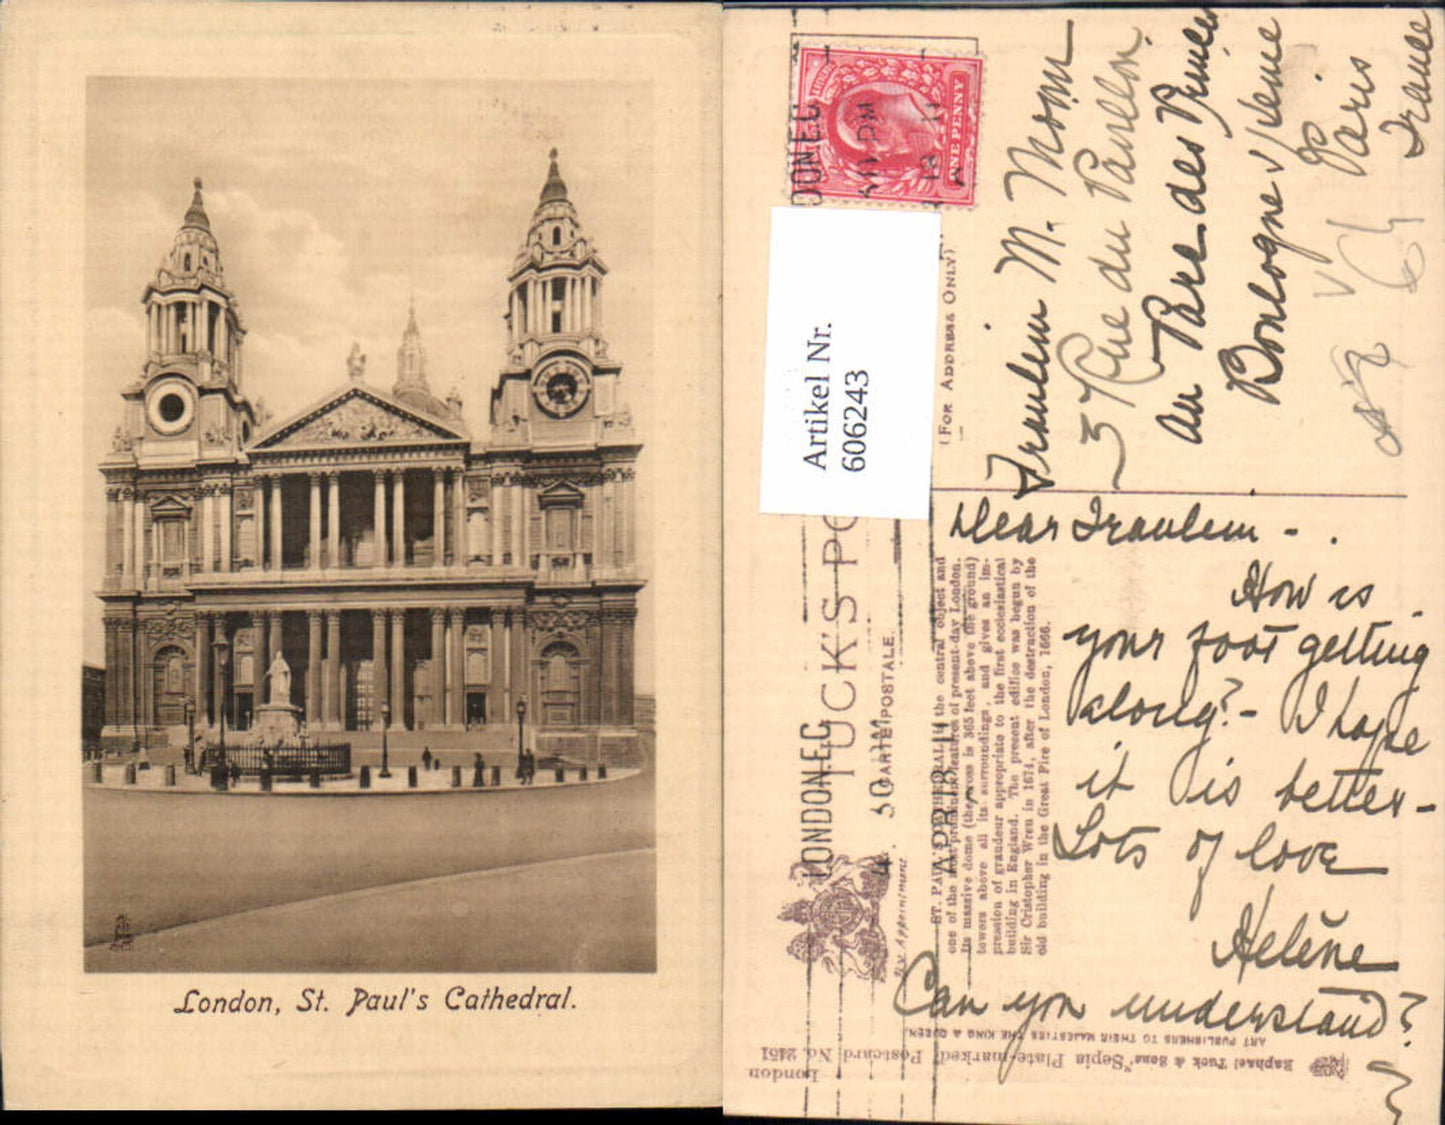 London, St. Paul's Cathedral.
ONE PENNY
LONDON. E.C
APR
Artikel Nr.
606243
TUCK'S
CARTE POSTALE.
(FOR ADDRESS ONLY)
By Appointment
ST. PAUL'S CATHEDRAL is the central object and
one of the most prominent features of present-day London.
Its massive dome (the cross is 365 feet above the ground)
towers above all its surroundings, and gives an im-
pression of grandeur appropriate to the first ecclesiastical
building in England. The present edifice was begun by
Sir Cristopher Wren in 1674, after the destruction of the
old building in the Great Fire of London, 1666.
Fraulein M. Mom
3 Rue du
au Parc des Princes
Boulogne s/Seine
Paris
France
Dear Fraulein - .
How is
your foot getting
along? - I hope
it is better -
Lots of love
Helène
Can you understand?
Raphael Tuck & Sons' "Sepia Plate-marked" Postcard No. 2451
ART PUBLISHERS TO THEIR MAJESTIES THE KING & QUEEN.
London